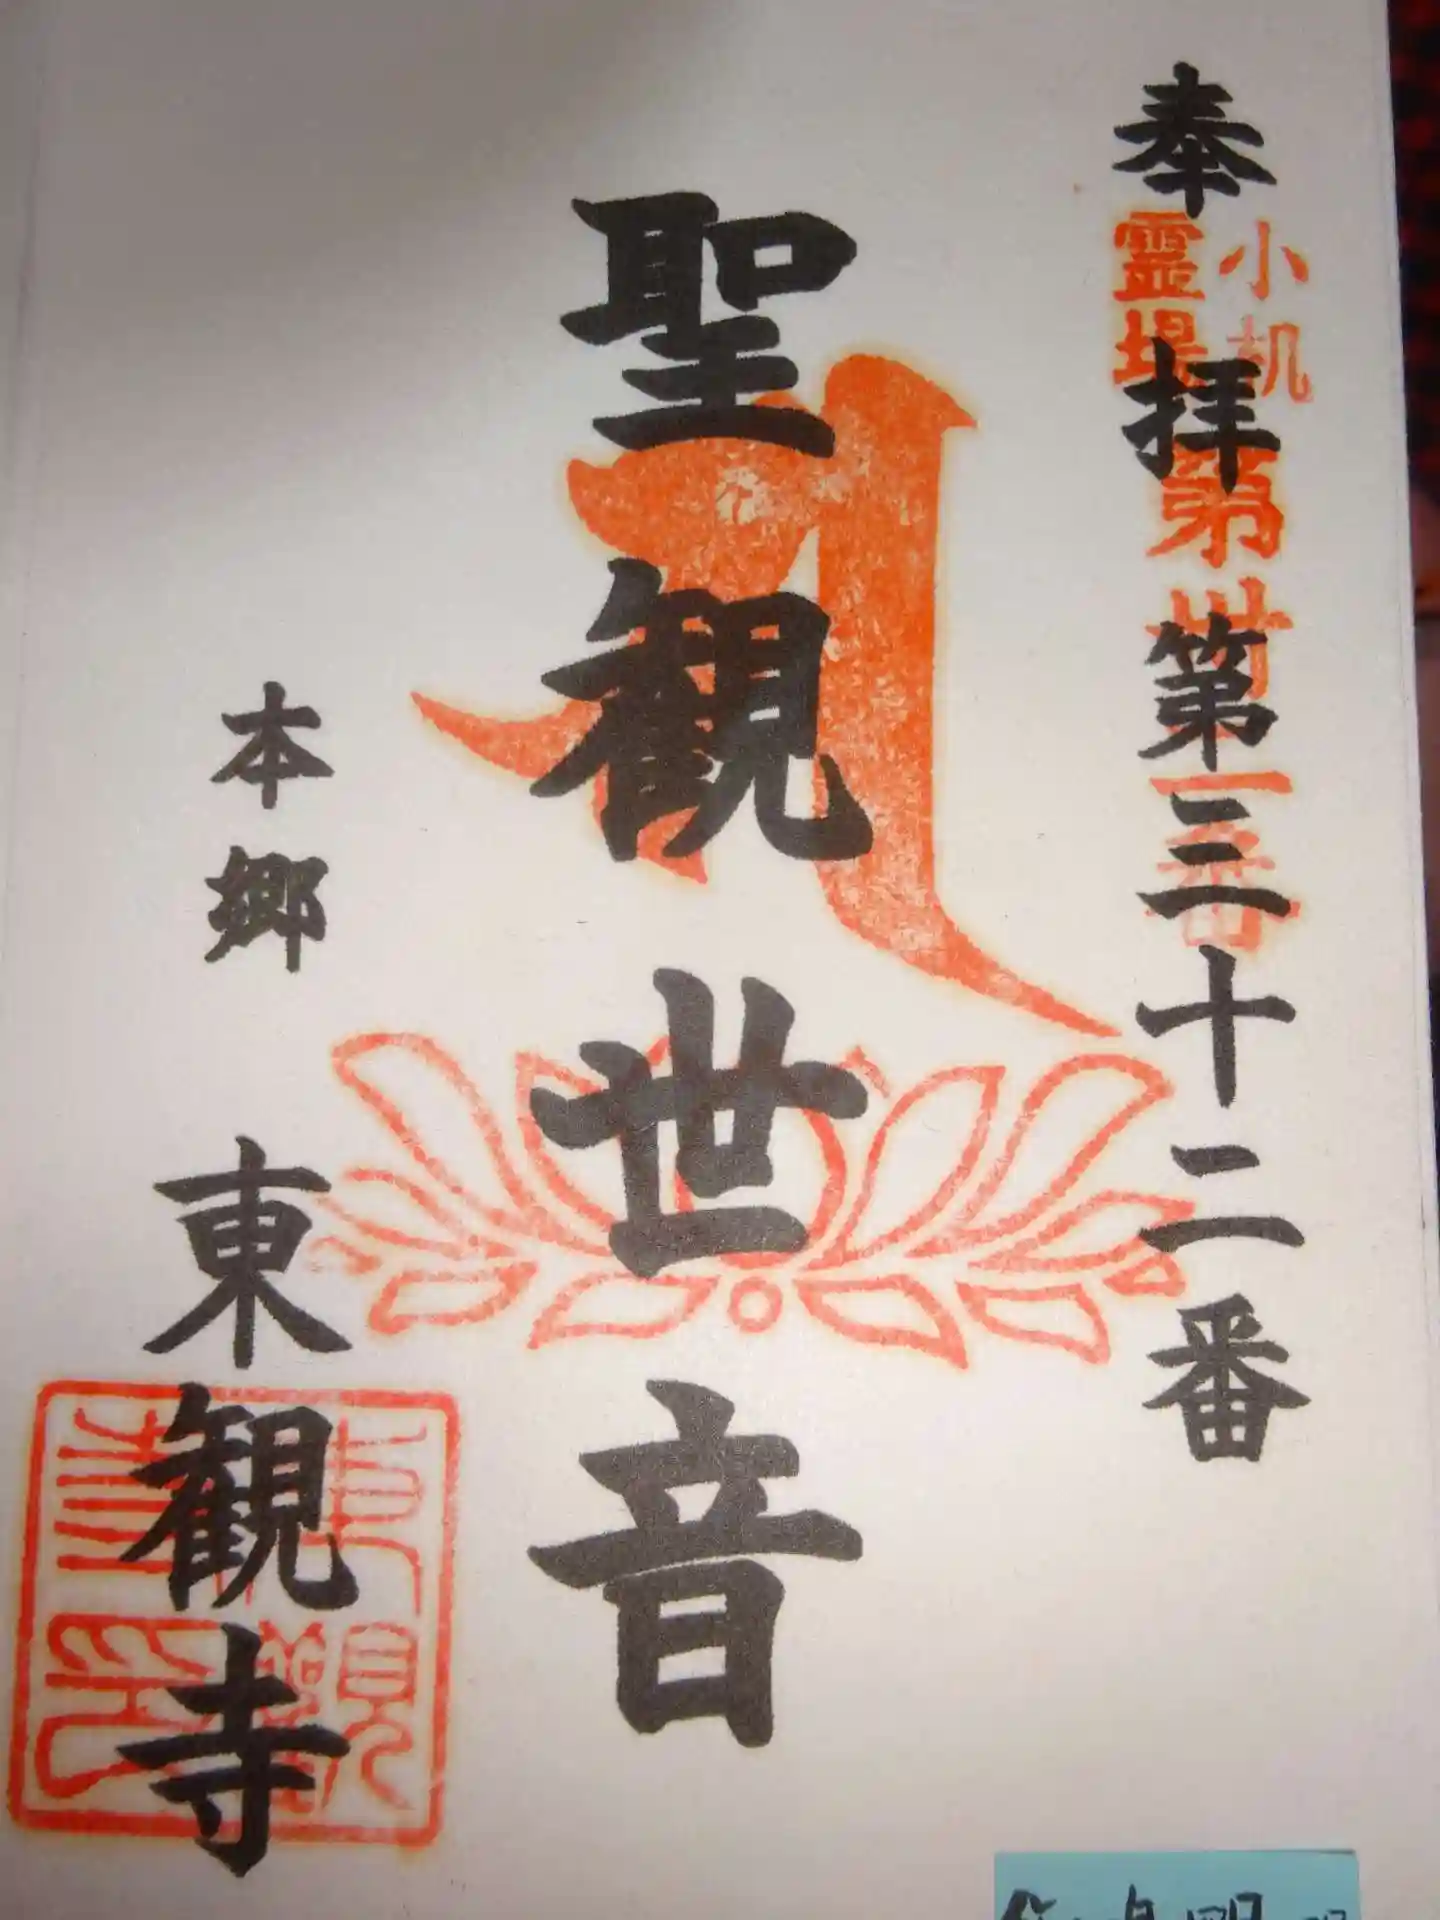 奉拝 第三十二番
小机
霊場
第卅二番
聖観世音
本郷 東観寺